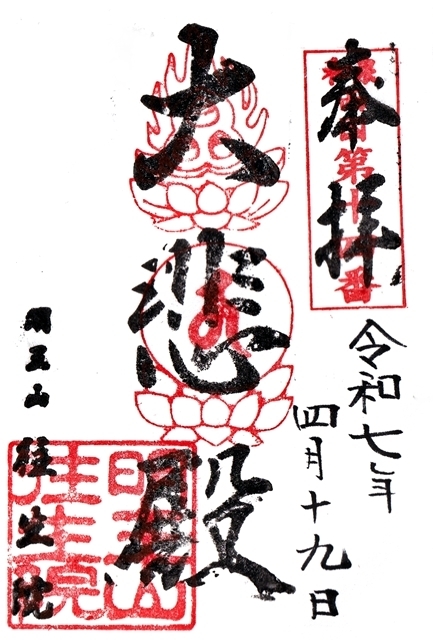 奉拝
第十四番
令和七年
四月十九日
大悲殿
明王山 往生院
明王山
往生院